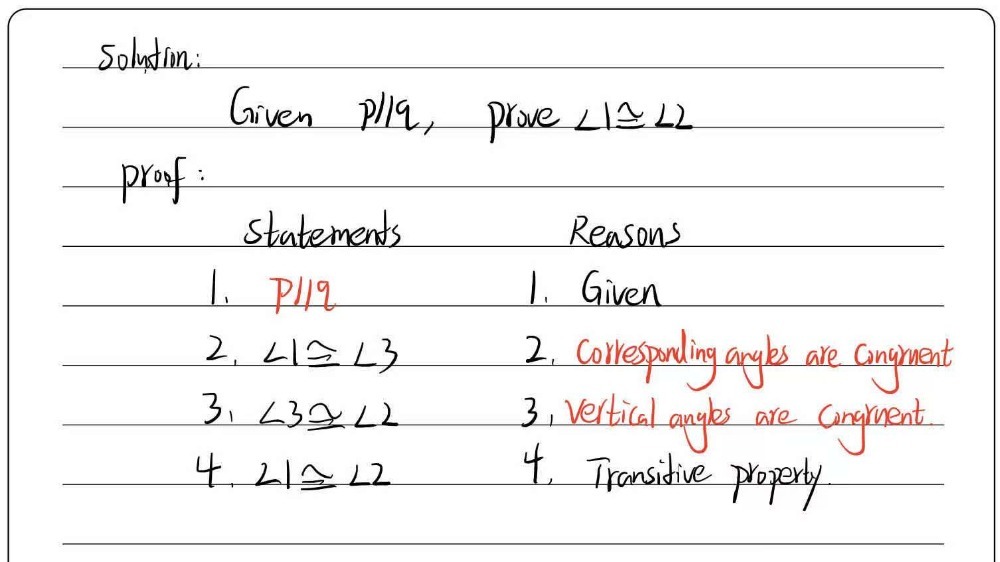 Solution:
Given p//q, prove ∠1≅∠2
proof:
Statements Reasons
1. p//q 1. Given
2. ∠1≅∠3 2. Corresponding angles are congruent
3. ∠3≅∠2 3, Vertical angles are congruent.
4. ∠1≅∠2 4. Transitive property.